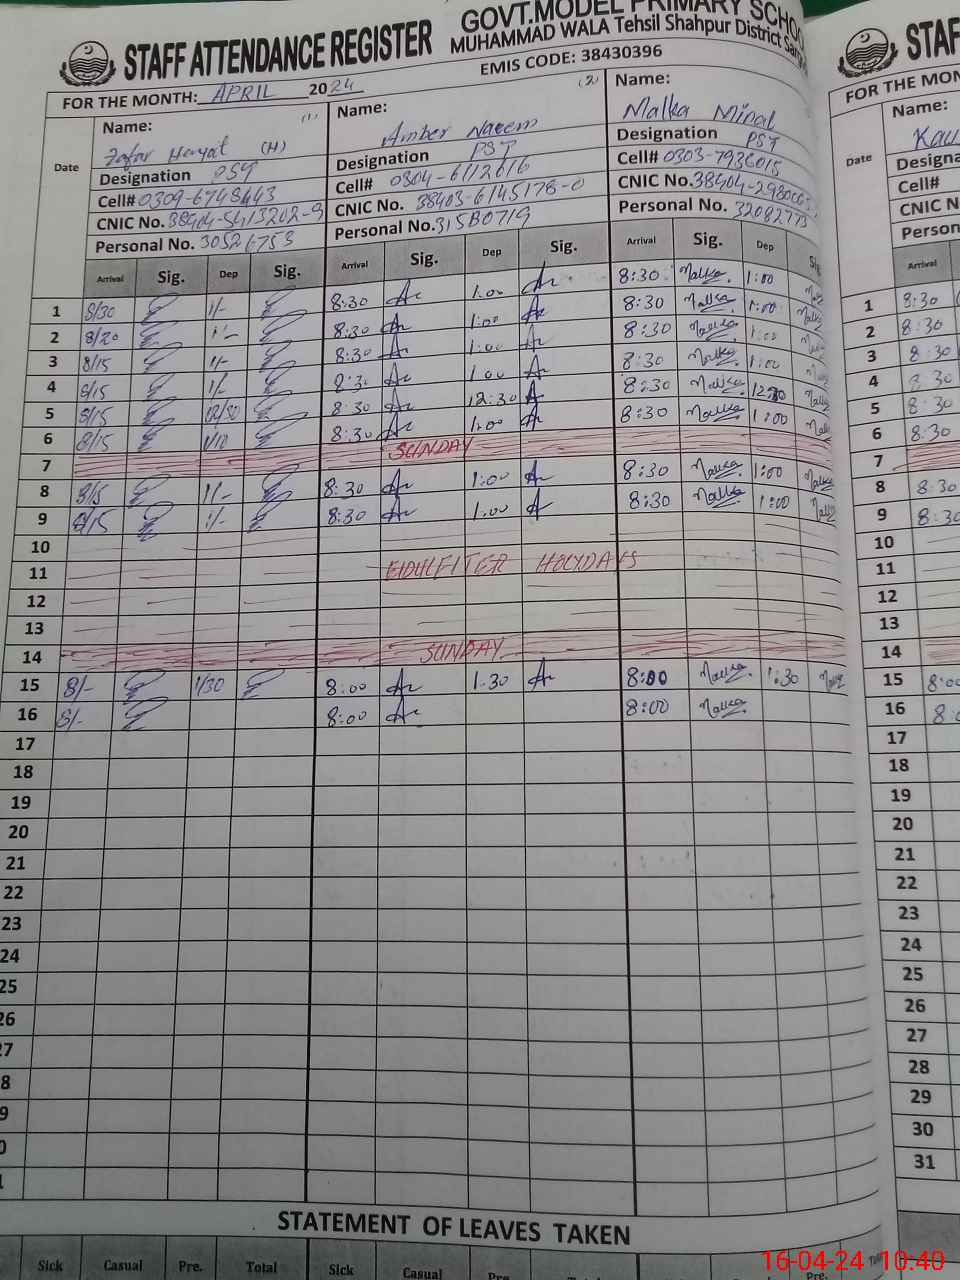 STAFF ATTENDANCE REGISTER
GOVT.MODEL PRIMARY SCHOO
MUHAMMAD WALA Tehsil Shahpur District Sar
EMIS CODE: 38430396
FOR THE MONTH: APRIL 2024
(1) (2)
Date
Name: Zafar Hayat (H)
Designation
Cell# 0309-6748443
CNIC No. 38404-5413202-9
Personal No. 30526753
Name: Amber Naeem
Designation PST
Cell# 0304-6112616
CNIC No. 38403-6145178-0
Personal No. 31580719
Name: Malka Minal
Designation PST
Cell# 0303-7936015
CNIC No. 38404-298000
Personal No. 32082773
Arrival Sig. Dep Sig. Arrival Sig. Dep Sig. Arrival Sig. Dep Sig
1 8/30 1/- 8:30 1:00 8:30 Malka 1:00
2 8/20 1/- 8:30 1:00 8:30 Malka 1:00
3 8/15 1/- 8:30 1:00 8:30 Malka 1:00
4 8/15 1/- 8:30 1:00 8:30 Malka 1:00
5 8/15 12/30 8:30 12:30 8:30 Malka 12:30
6 8/15 1/10 8:30 1:00 8:30 Malka 1:00
7 SUNDAY
8 8/15 1/- 8:30 1:00 8:30 Malka 1:00
9 8/15 1/- 8:30 1:00 8:30 Malka 1:00
10
11 EIDULFITER HOLYDAYS
12
13
14 SUNDAY
15 8/- 1/30 8:00 1:30 8:00 Malka 1:30
16 8/- 8:00 8:00 Malka
17
18
19
20
21
22
23
24
25
26
27
8
9
0
1
STATEMENT OF LEAVES TAKEN
Sick Casual Pre. Total Sick Casual Pre. Pre.
STAF
FOR THE MON
Date
Name:
Kau
Designa
Cell#
CNIC N
Person
Arrival
1 8:30
2 8:30
3 8:30
4 8:30
5 8:30
6 8:30
7
8 8:30
9 8:30
10
11
12
13
14
15 8:00
16 8:0
17
18
19
20
21
22
23
24
25
26
27
28
29
30
31
16-04-24 10:40